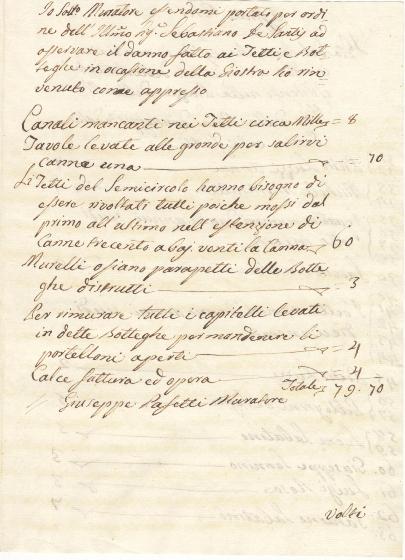 Io Sotto Muratore essendomi portato per ordi
ne dell'Illmo Sigr Sebastiano De Santis ad
osservare il danno fatto ai Tetti e Bot
teghe in ocasione della Giostra hò rin
venuto come appresso
Canali mancanti nei Tetti circa Mille = 8
Tavole levate alle gronde per salirvi
canne una = 70
Li Tetti del Semicircolo hanno bisogno di
essere rivoltati tutti poiche mossi dal
primo all'ultimo nell'estenzione di
Canne trecento a baj: venti la Canna 60
Murelli o siano parapetti delle Botte
ghe distrutti = 3
Per rimurare tutti i capitelli levati
in dette Botteghe per mandenere li
portelloni aperti = 4
Calce fattura ed opera = 4
Totale = 79. 70
Giuseppe Pasetti Muratore
volti